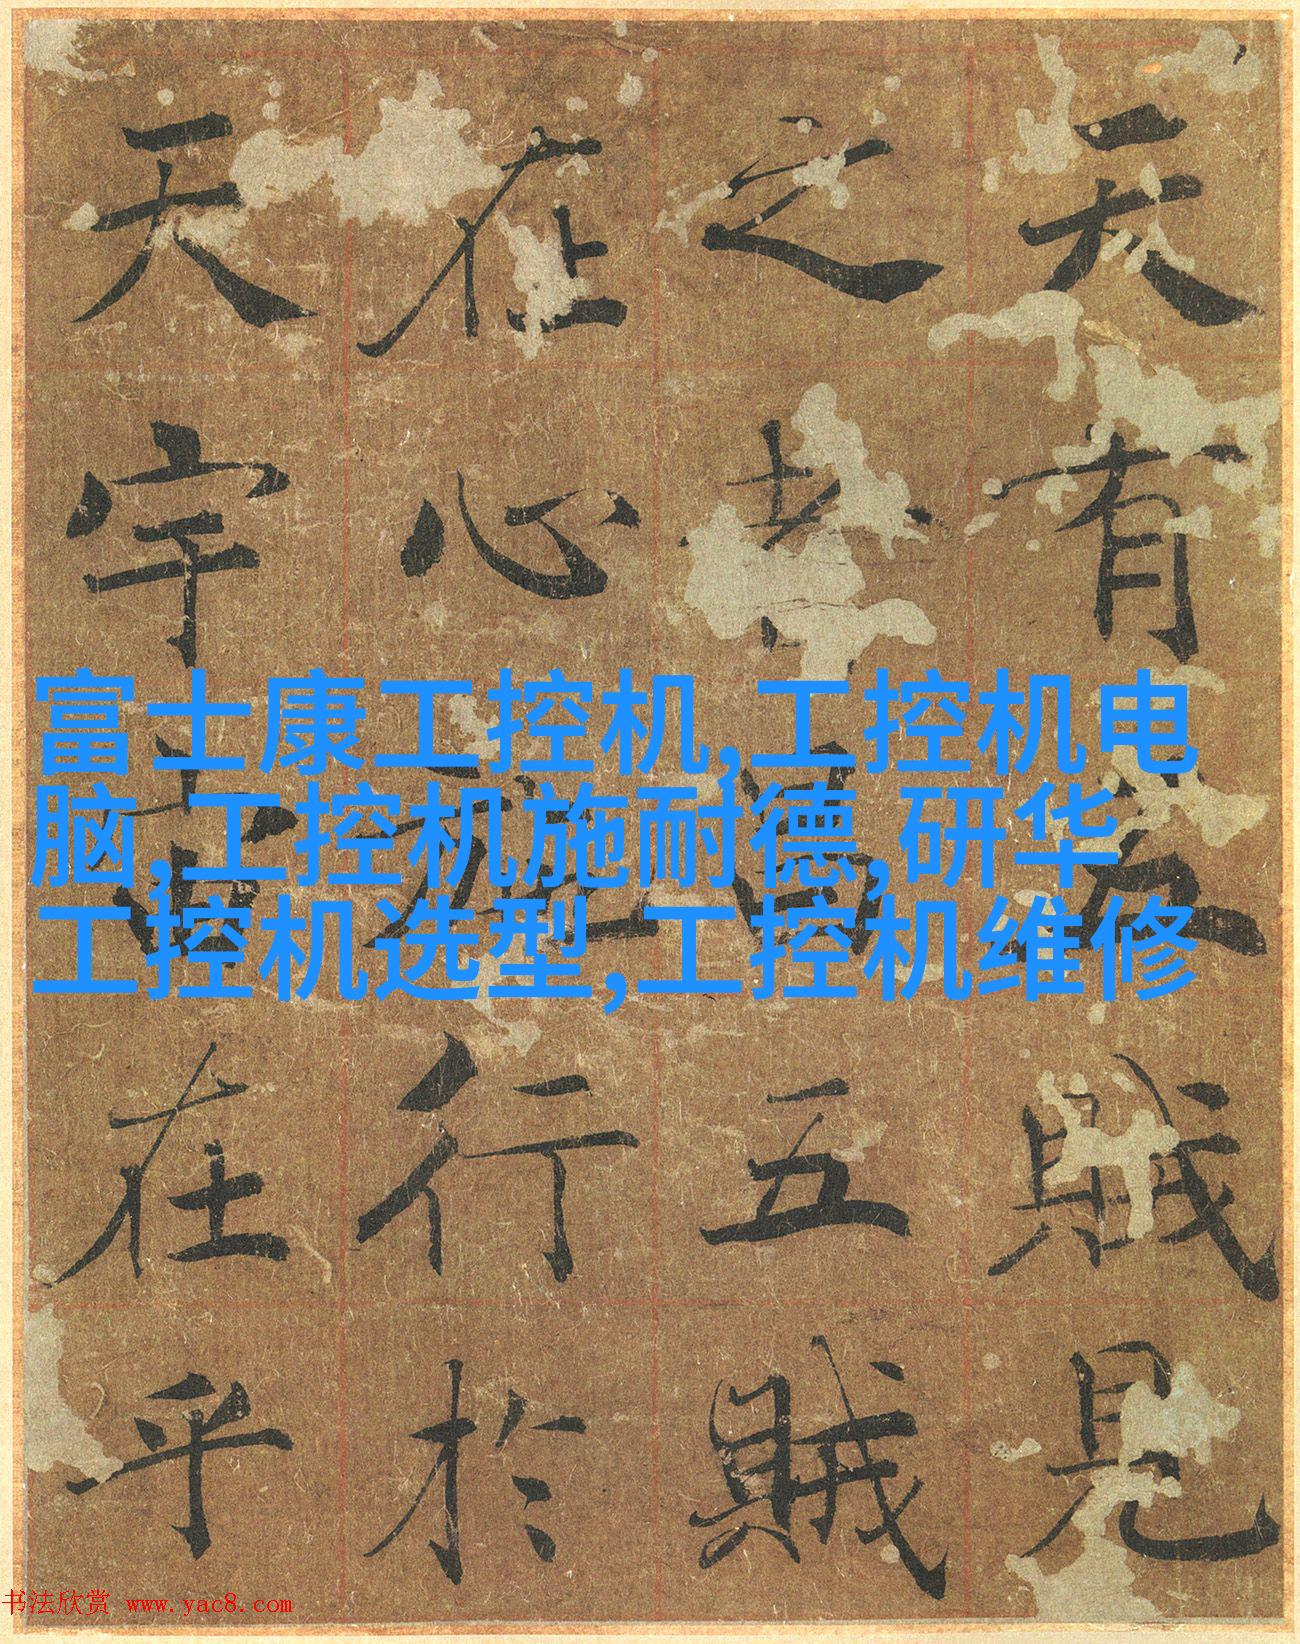 天有五賊見
之者昌五賊
在心施行於
天宇宙在乎
富士康工控机,工控机电
脑,工控机施耐德,研华
工控机选型,工控机维修
书法欣赏 www.yac8.com